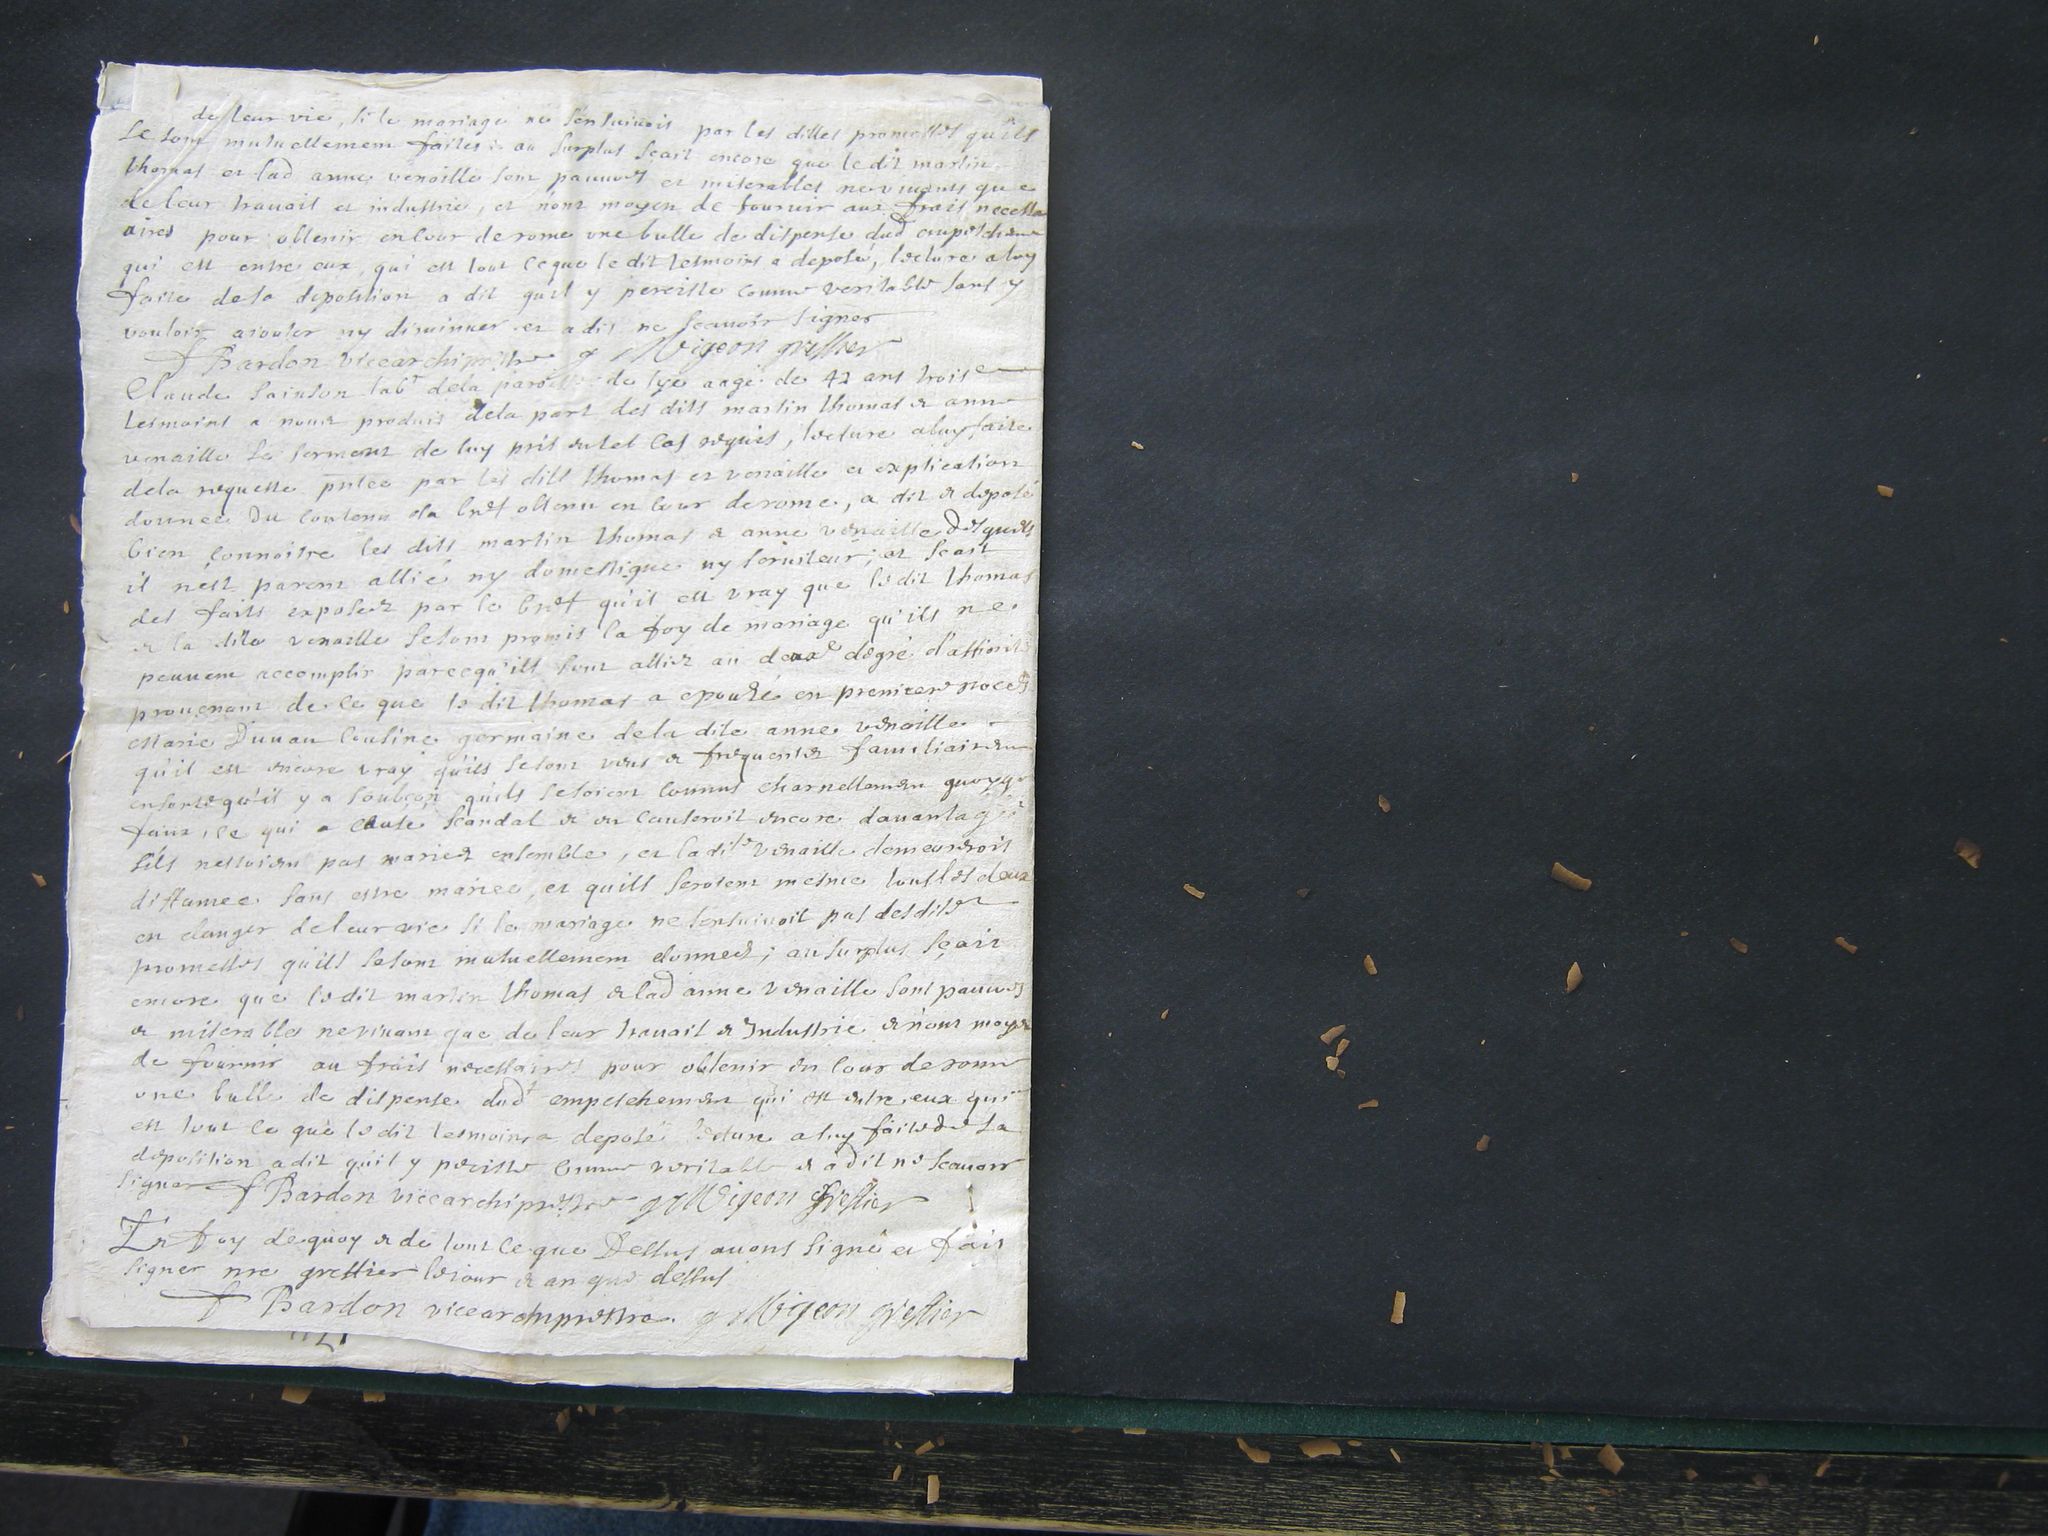 de leur vie, si le mariage ne s'ensuivois par les dittes promesses qu'ils
se sont mutuellement faites ; au surplus sçait encore que le dit martin
thomas et lad anne venaille sont pauvres et miserables ne vivants que
de leur travail et industrie, et n'ont moyen de fournir aux frais necessa
aires pour obtenir en cour de rome une bulle de dispense dud empeschem
qui est entre eux, qui est tout ce que le dit tesmoins a deposé, lecture a luy
faite de sa deposition a dit qu'il y perciste comme veritable sans y
vouloir ajouter ny diminuer et a dit ne scavoir signer
Bardon vicearchiprestre g Migeon greffier
Claude sainson lab.r de la paroisse de lye aagé de 42 ans trois.e
tesmoins a nous produit de la part des dits martin thomas et anne
venaille le serment de luy pris en tel cas requis, lecture a luy faite
de la requeste pntée par les dits thomas et venaille et explication
donnee du contenu da bref obtenu en cour de rome, a dit et deposé
bien connoitre les dits martin thomas et anne venaille desquels
il n'est parent allié ny domestique ny serviteur ; et scait
des faits exposez par le bref qu'il est vray que le dit thomas
et la dite venaille se sont promis la foy de mariage qu'ils ne
peuvent accomplir parcequ'ils sont alliez au deux.e degré d'affinité
provenant de ce que le dit thomas a epouzé en premieres noces
marie Duvau cousine germaine de la dite anne venaille
qu'il est encore vray qu'ils se sont veus et frequentez familiairem
ensorte qu'il y a soubçon qu'ils se soient connus charnellement quoyq
faux, ce qui a causé scandal et en causeroit encore davantage
s'ils nestoient pas mariez ensemble, et la dite venaille demeureroit
diffamee sans estre mariee, et quils seroient mesme tous les deux
en danger de leur vie si le mariage ne s'ensuivoit pas desdites
promesses qu'ils se sont mutuellement donnees ; au surplus sçait
encore que le dit martin thomas et lad anne venaille sont pauvres
et miserables ne vivant que de leur travail et Industrie et n'ont moyen
de fournir au frais necessaires pour obtenir en cour de rome
une bulle de dispense dud.t empeschement qui est entre eux qui
est tout ce que le dit tesmoins a deposé lecture a luy faite de sa
deposition a dit qu'il y perciste comme veritable et a dit ne scavoir
signer Bardon vicearchiprestre g Migeon Greffier
En foy de quoy et de tout ce que Dessus avons signé et fait
signer nre greffier les jour et an que dessus
Bardon vicearchiprestre. g Migeon greffier